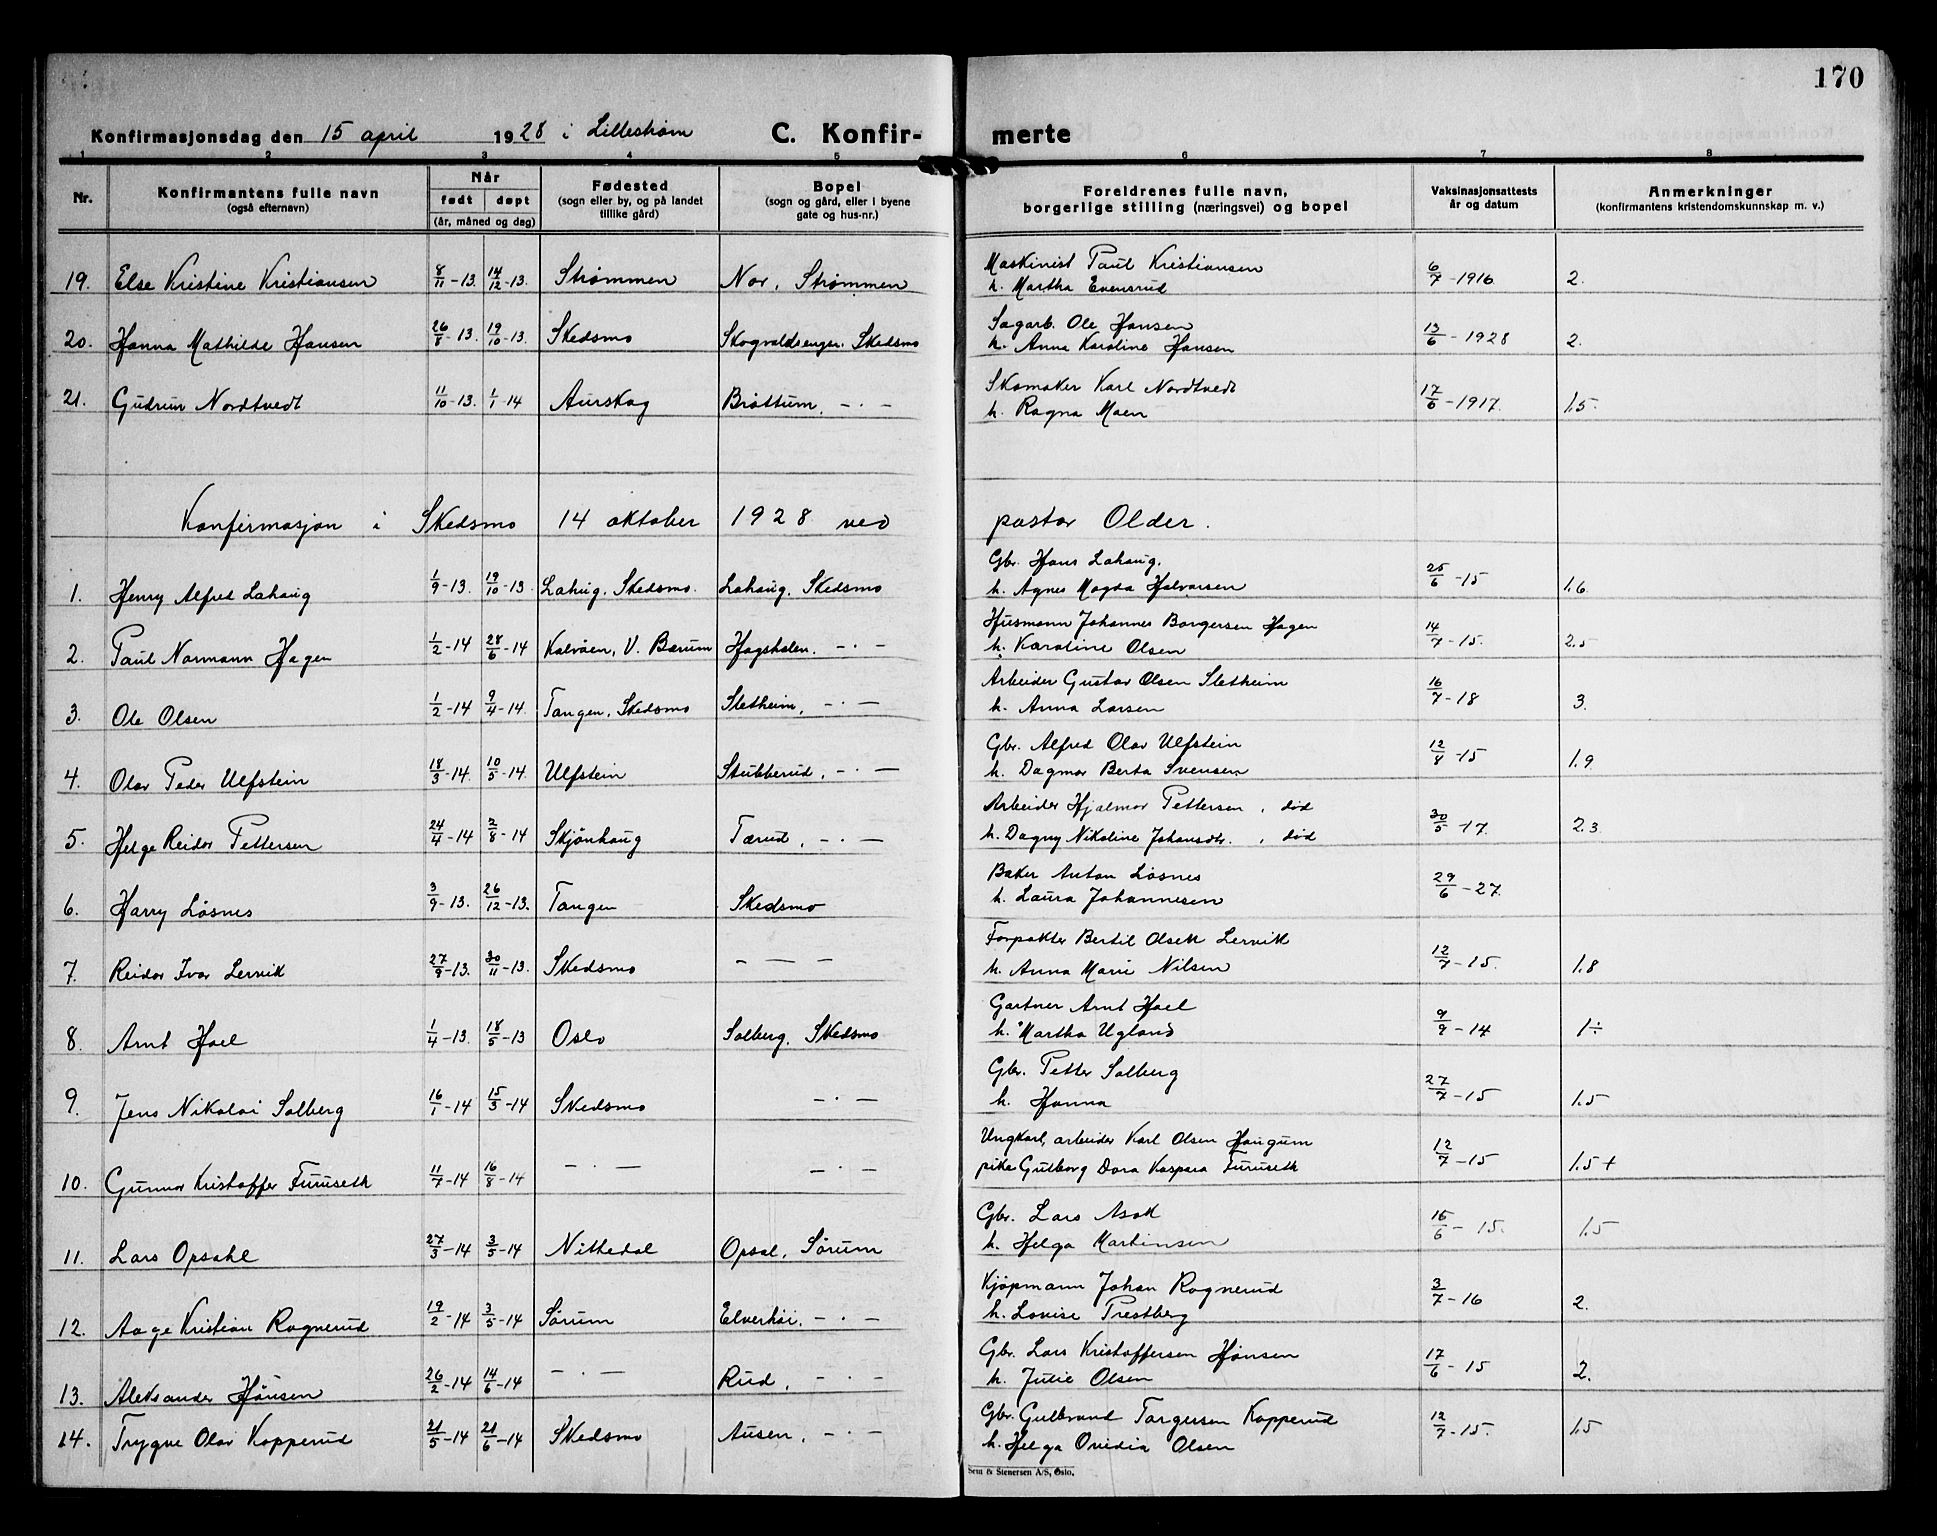 170
Konfirmasjonsdag den 15 april 1928 i Lillestrøm C. Konfir- merte
1 2 3 4 5 6 7 8
Nr. Konfirmantens fulle navn (også efternavn) Når født døpt (år, måned og dag) Fødested (sogn eller by, og på landet tillike gård) Bopel (sogn og gård, eller i byene gate og hus-nr.) Foreldrenes fulle navn, borgerlige stilling (næringsvei) og bopel Vaksinasjonsattests år og datum Anmerkninger (konfirmantens kristendomskunnskap m. v.)
19. Else Kristine Kristiansen 8/11-13. 14/12-13. Strømmen Nor, Strømmen Maskinist Paul Kristiansen 6/7-1916 2.
h. Martha Evensrud
20. Hanna Mathilde Hansen 26/8-13. 19/10-13. Skedsmo Skogvoldsenger. Skedsmo Sagarb. Ole Hansen 13/6-1928 2.
h. Anna Karoline Hansen
21. Gudrun Nordtvedt 11/10-13. 1/1-14 Aurskog Bråttum, -·- Skomaker Karl Nordtvedt 17/6-1917. 1.5-
h. Ragna Moen
Konfirmasjon i Skedsmo 14 oktober 1928 ved pastor Older.
1. Henry Alfred Lahaug 1/9-13. 19/10-13 Lahug, Skedsmo. Lahaug, Skedsmo Gbr. Hans Lahaug. 25/6-15 1.6
h. Agnes Magda Halvorsen
2. Paul Normann Hagen 1/2-14 28/6-14 Kalvåen, V. Bærum Hagshalen. -·- Husmann Johannes Borgersen Hagen 14/7-15. 2.5
h. Karoline Olsen
3. Ole Olsen 1/2-14 9/4-14. Tangen, Skedsmo Sletheim, -·- Arbeider Gustav Olsen Sletheim 16/7-18 3.
h. Anna Larsen
4. Olav Peder Ulfstein 18/3-14. 10/5-14. Ulfstein Stubberud, -·- Gbr. Alfred Olav Ulfstein 12/8-15 1.9
h. Dagmar Berta Svensen
5. Helge Reidar Pettersen 24/4-14 2/8-14 Skjønhaug Tærud, -·- Arbeider Hjalmar Pettersen, død 30/5-17. 2.3
h. Dagny Nikoline Johansdtr., død
6. Harry Løsnes 3/9-13. 26/12-13. Tangen Skedsmo Baker Anton Løsnes 29/6-27.
h. Laura Johannesen
7. Reidar Ivar Lervik 27/9-13. 30/11-13. Skedsmo - — - Forpakter Bertil Olsen Lervik 12/7-15. 1.8
h. Anna Marie Nilsen
8. Arnt Hoel 1/4-13. 18/5-13 Oslo Solberg, Skedsmo Gartner Arnt Hoel 9/9-14 1÷
h. Martha Ugland
9. Jens Nikolai Solberg 16/1-14 15/3-14 Skedsmo -·- Gbr. Petter Solberg 27/7-15 1.5
h. Hanna
10. Gunnar Kristoffer Furuseth 11/7-14 16/8-14 -·- -·- Ungkarl, arbeider Karl Olsen Haugum 12/7-15 1.5+
pike Gulborg Dora Kaspara Furuseth
11. Lars Opsahl 27/3-14 3/5-14 Nittedal Opsal, Sørum Gbr. Lars Asak 15/6-15. 1.5
h. Helga Martinsen
12. Aage Kristian Rognerud 19/2-14 3/5-14 Sørum Elverhøi, -·- Kjøpmann Johan Rognerud 3/7-16 2.
h. Lovise Prestberg
13. Aleksander Hønsen 26/2-14 14/6-14 -·- Rud, -·- Gbr. Lars Kristoffersen Hønsen 17/6-15 2.
h. Julie Olsen
14. Trygve Olav Kopperud 21/5-14 21/6-14 Skedsmo Ausen, -·- Gbr. Gulbrand Torgersen Kopperud 12/7-15. 1.5
h. Helga Ovidia Olsen
Sem & Stenersen A/S, Oslo.